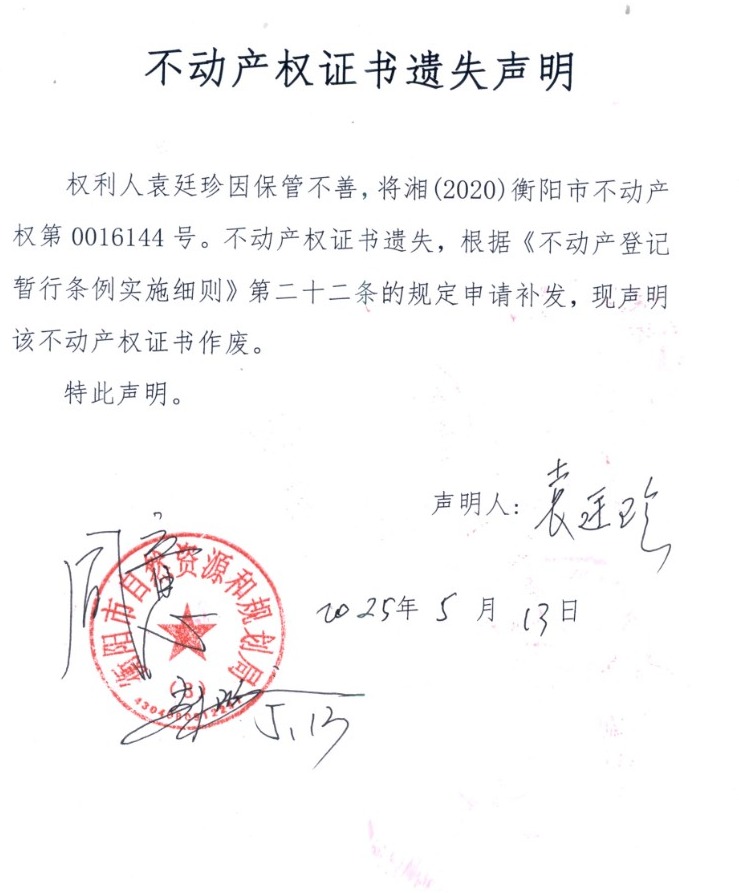 不动产权证书遗失声明
权利人袁廷珍因保管不善，将湘(2020)衡阳市不动产
权第 0016144 号。不动产权证书遗失，根据《不动产登记
暂行条例实施细则》第二十二条的规定申请补发，现声明
该不动产权证书作废。
特此声明。
声明人：袁廷珍
2025年 5 月 13日
衡阳市自然资源和规划局
(3)
5.13